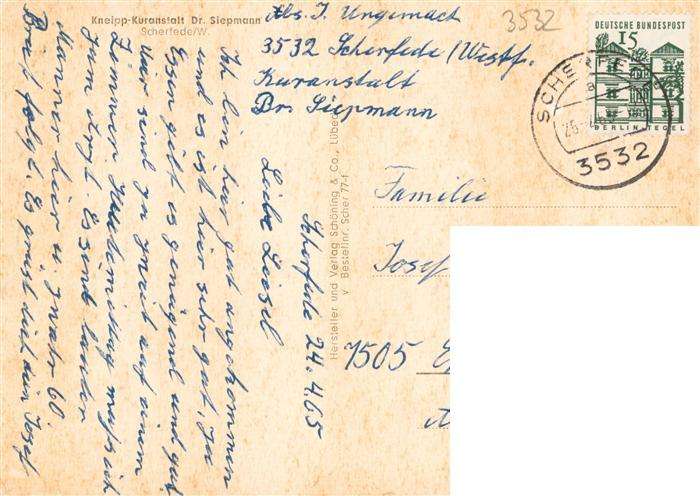 Kneipp-Kuranstalt Dr. Siepmann
Scherfede/W.
Abs. J. Ungemach
3532 Scherfede/Westf.
Kuranstalt
Dr. Siepmann
3532
DEUTSCHE BUNDESPOST
15
BERLIN-TEGEL
SCHERFEDE
a
3532
Familie
Josef
7505
Hersteller und Verlag Schöning & Co., Lübeck
Bestellnr. Scher 77-f
Scherfede 24.4.65
Liebe Liesel
Ich bin hier gut angekommen
und es ist hier sehr gut, zu
Essen gibt es genügend und gut
wir sind zu zweit auf einem
Zimmer,
zum Arzt. Es sind lauter
Männer hier u. zwar 60.
Brief folgt. Es grüßt dich dein Josef